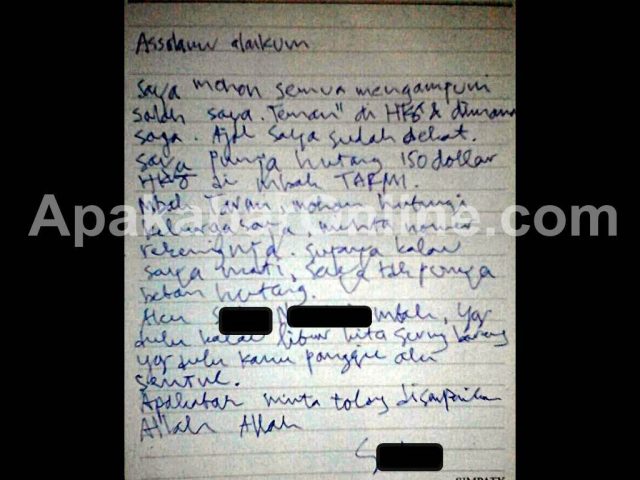 Assalamu alaikum
Saya mohon semua mengampuni
salah saya. Teman" di HKG & dimana
saja. Ajal saya sudah dekat.
Saya punya hutang 150 dollar
HKG di mbak TARMI.
Mbak Tarmi, mohon hubungi
keluarga saya, minta nomer
rekeningnya. supaya kalau
saya mati, saya tak punya
beban hutang.
Aku S N mbak, yg
dulu kalau libur kita sering bareng
yg dulu kamu panggil aku
sentul.
Apakabar minta tolong disampaikan
Allah Allah
S
SIMPATY
ApakabarOnline.com